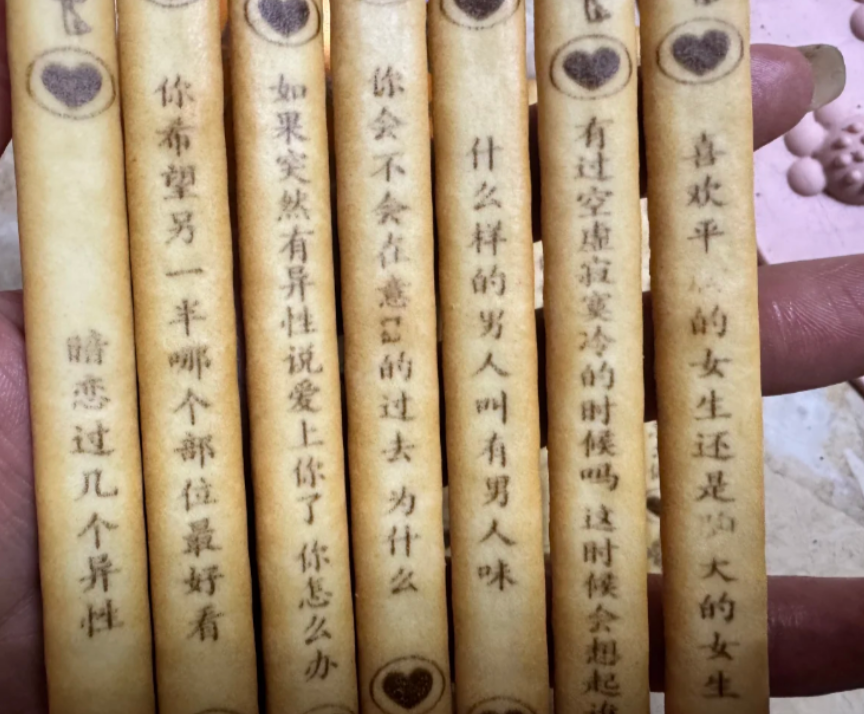 暗恋过几个异性
你希望另一半哪个部位最好看
如果突然有异性说爱上你了 你怎么办
你会不会在意 的过去 为什么
什么样的男人叫有男人味
有过空虚寂寞冷的时候吗 这时候会想起
喜欢平 的女生还是 大的女生